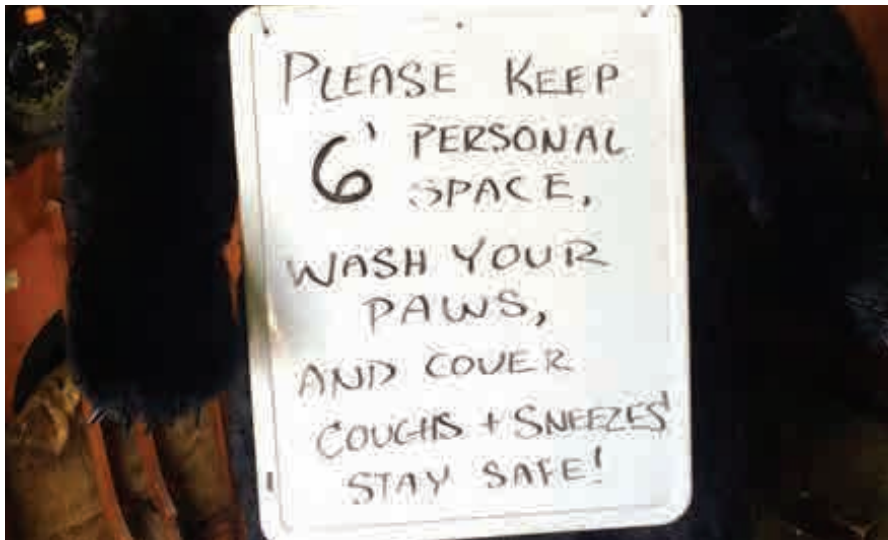 PLEASE KEEP
6' PERSONAL
SPACE,
WASH YOUR
PAWS,
AND COVER
COUGHS + SNEEZES!
STAY SAFE!